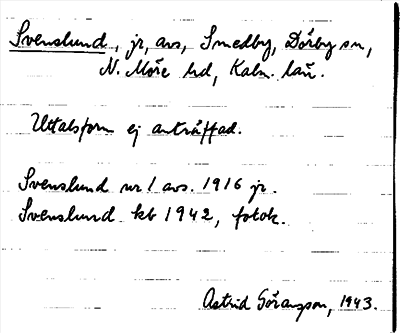 Svenslund, jr, avs, Smedby, Dörby sn,
N. Möre hd, Kalm. län.
Uttalsform ej anträffad.
Svenslund nr 1 avs. 1916 jr.
Svenslund kb 1942, fotok.
Astrid Göransson, 1943.